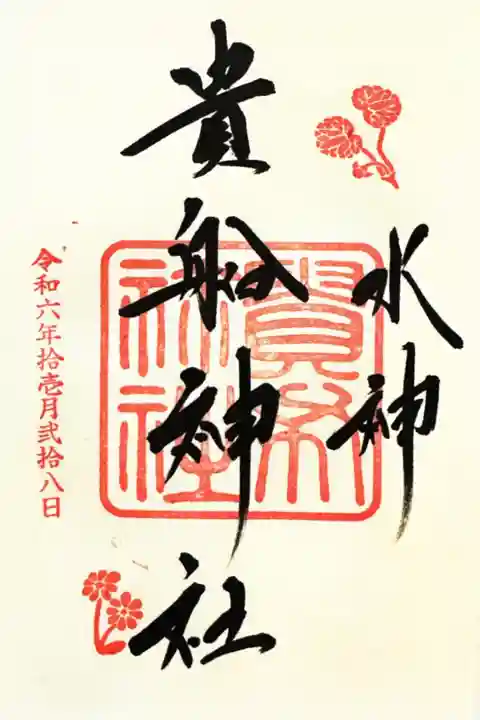 水神
貴船神社
令和六年拾壱月弐拾八日